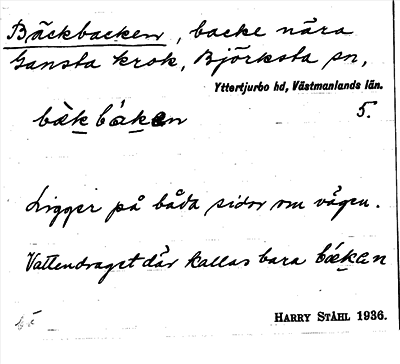 Bäckbacken, backe nära
Gansta krok, Björksta sn,
Yttertjurbo hd, Västmanlands län.
5.
bäkbáken
Ligger på båda sidor om vägen.
Vattendraget där kallas bara bækan
HARRY STÅHL 1936.